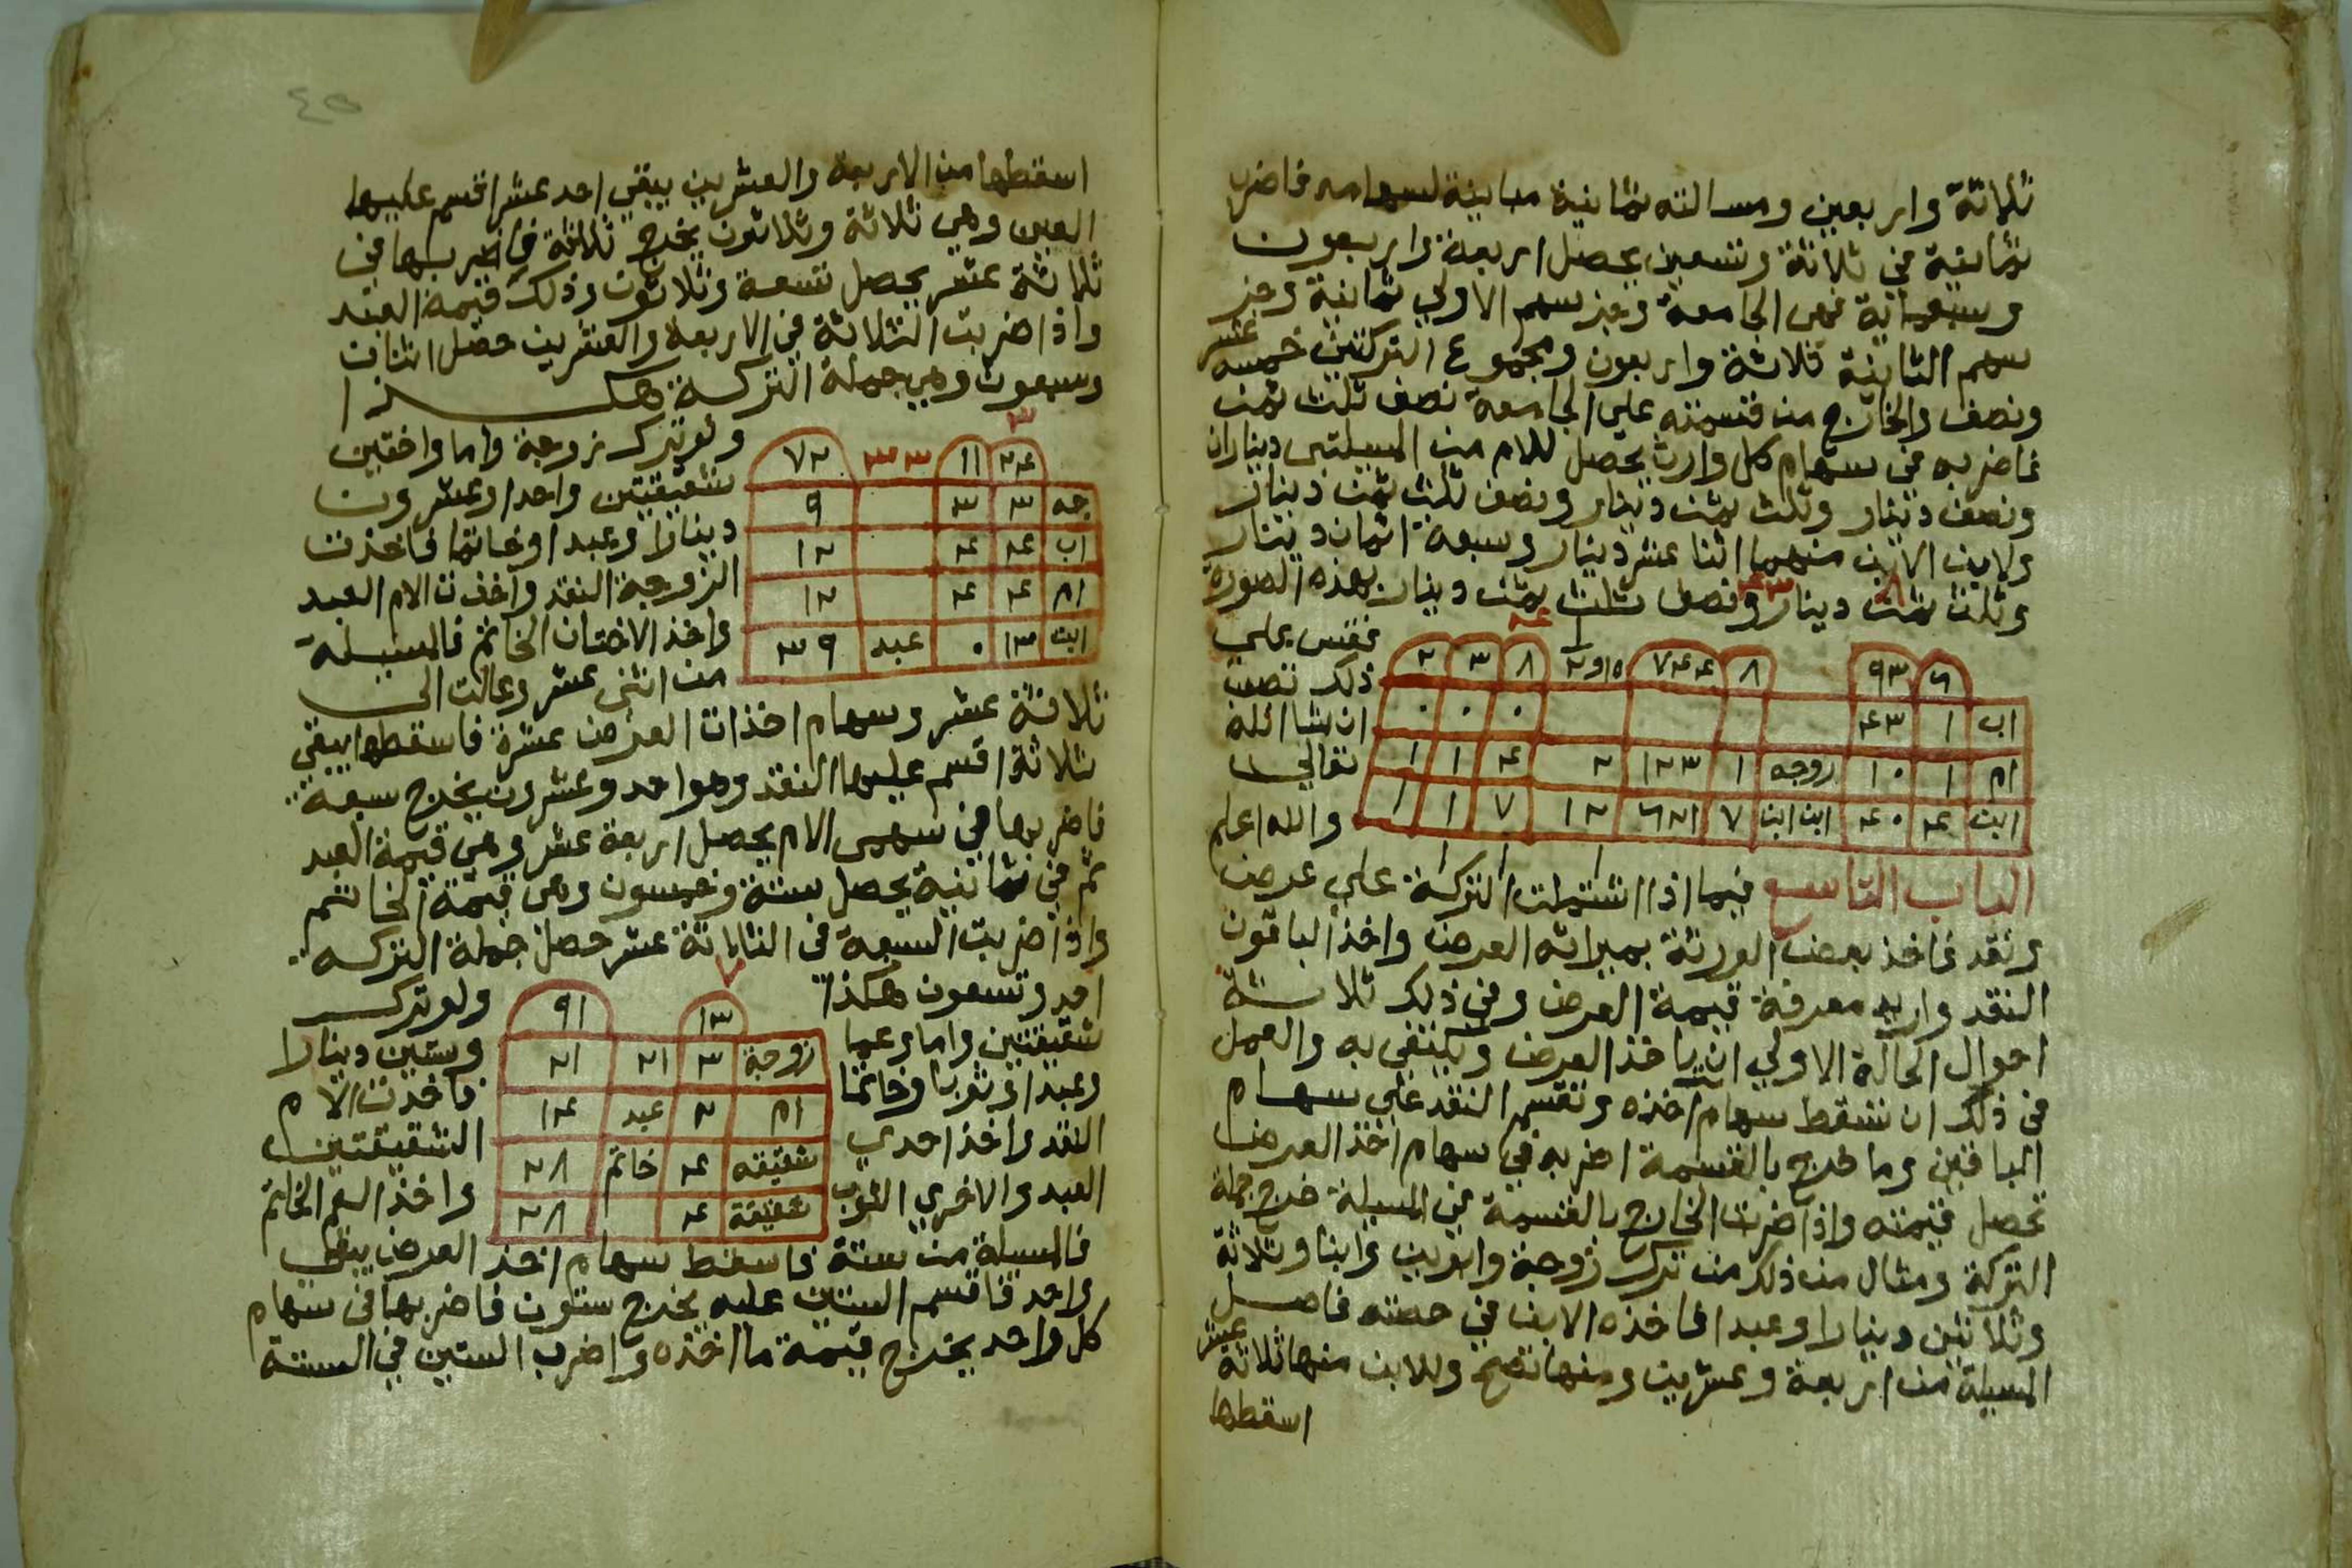 ثلاثة واربعين ومسالته ثمانية مباينة لسهامه فاضرب
ثمانية في ثلاثة وتسعين يحصل اربعة واربعون
وسبعماية فهى الجامعة وجزسهم الاولي ثمانية وجز
سهم الثانية ثلاثة واربعون ومجموع التركتين خمسة عشر
ونصف والخارج من قسمته علي الجامعة نصف ثلث ثمن
فاضربه في سهام كل وارث يحصل للام من المسيلتين ديناران
ونصف دينار وثلث ثمن دينار ونصف ثلث ثمن دينار
ولابن الابن منهما اثنا عشر دينار وسبعة اثمان دينار
وثلث ثمن دينار ونصف ثلث ثمن دينار بهذه الصورة
فقس علي
ذلك تصب
ان شا الله
تعالي
والله اعلم
٦ ٩٣ ٨ ٧٤٤ ١٥و٢ ٨ ٣ ٢
اب ١ ٤٣ ٠ ٠ ٠
ام ١ ١٠ زوجه ١ ١٢٣ ٢ ٤ ١ ١
ابن ٤ ٤٠ ابن ابن ٧ ٦٢١ ١٢ ٧ ١ ١
الباب التاسع فيما اذا اشتملت التركة علي عرض
ونقد فاخذ بعض الورثة بميراثه العرض واخذ الباقون
النقد واريد معرفة قيمة العرض وفي ذلك ثلاثة
احوال الحالة الاولي ان ياخذ العرض ويكتفي به والعمل
في ذلك ان تسقط سهام اخذه وتقسم النقد علي سهام
الباقين وما خرج بالقسمة اضربه في سهام اخذ العرض
تحصل قيمته واذا ضربت الخارج بالقسمة في المسيلة خرج جملة
التركة ومثال من ذلك من ترك زوجة وابوين وابنا وثلاثة
وثلاثين دينارا وعبدا فاخذه الابن في حصته فاصل
المسيلة من اربعة وعشرين ومنها تصح وللابن منها ثلاثة عشر
اسقطها
٤٥
اسقطها من الاربعة والعشرين يبقي احد عشر اقسم عليها
العين وهي ثلاثة وثلاثون يخرج ثلاثة فاضربها في
ثلاثة عشر يحصل تسعة وثلاثون وذلك قيمة العبد
واذا ضربت الثلاثة في الاربعة والعشرين حصل اثنان
وسبعون وهي جملة التركة هكذا
٣
٢٤ ١١ ٣٣ ٧٢
جه ٣ ٣ ٩
اب ٤ ٤ ١٢
ام ٤ ٤ ١٢
ابن ١٣ ٠ عبد ٣٩
ولو ترك زوجة واما واختين
شقيقتين واحدا وعشرون
دينارا وعبدا وخاتما فاخذت
الزوجة النقد واخذت الام العبد
واخذ الاختان الخاتم فالمسيلة
من اثنى عشر وعالت الى
ثلاثة عشر وسهام اخذات العرض عشرة فاسقطها يبقي
ثلاثة اقسم عليها النقد وهو احد وعشرون يخرج سبعة
فاضربها في سهمى الام يحصل اربعة عشر وهي قيمة العبد
ثم في ثمانية يحصل ستة وخمسون وهى قيمة الخاتم
واذا ضربت السبعة في الثلاثة عشر حصل جملة التركه
احد وتسعون هكذا
١٣ ٩١
زوجة ٣ ٢١ ٢١
ام ٢ عبد ١٤
شقيقه ٤ خاتم ٢٨
شقيقة ٤ ٢٨
ولو ترك
شقيقتين واما وعما وستين دينارا
وعبدا وثوبا وخاتما فاخذت الام
النقد واخذ احدي الشقيقتين
العبد والاخري الثوب واخذ العم الخاتم
فالمسيلة من ستة فاسقط سهام اخذ العرض يبقي
واحد فاقسم الستين عليه يخرج ستون فاضربها في سهام
كل واحد يخرج قيمة ما اخذه واضرب الستين في الستة